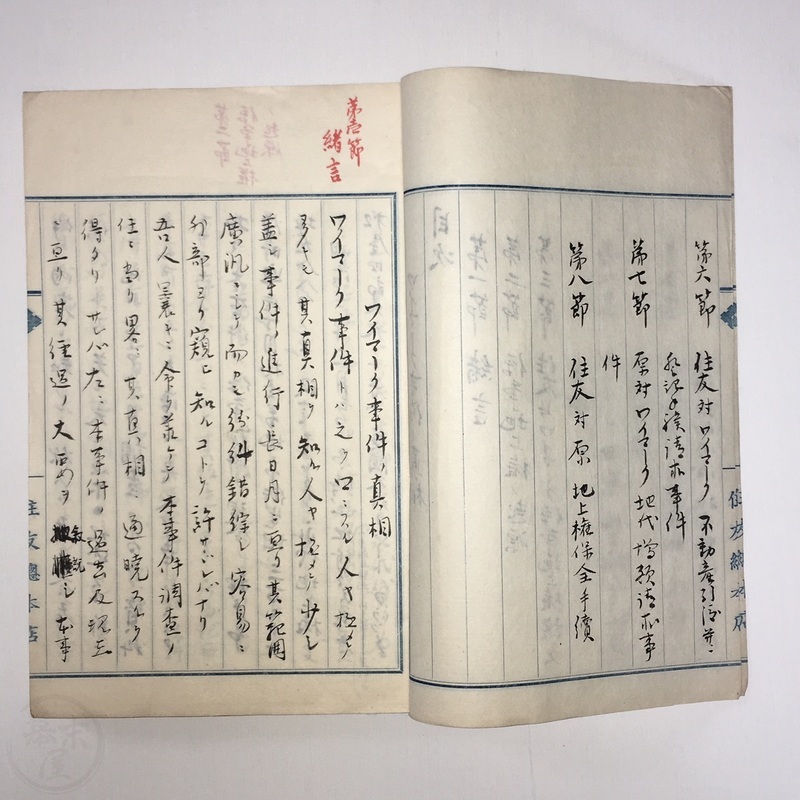 第六節　住友対ワイマーク不動産引渡並ニ
登記手続請求事件
第七節　原対ワイマーク地代増額請求事
件
第八節　住友対原　地上権保全手続
住友総本店
第壱節
緒言
ワイマーク事件ノ真相
ワイマーク事件トハ之ヲ口ニスル人ハ極メテ
多キモ其真相ヲ知ル人ハ極メテ少シ
蓋シ事件ノ進行ハ長日月ニ亘リ其範囲
広汎ニシテ而カモ紛糾錯綜シ容易ニ
外部ヨリ窺ヒ知ルコトヲ許サザレバナリ
吾人曩キニ命ヲ承ケテ本事件調査ノ
任ニ当リ略ニ其真相ニ通暁スルヲ
得タリサレバ左ニ本事件ノ過去及現在
ニ亘リ其経過ノ大要ヲ叙説シ本事
住友総本店